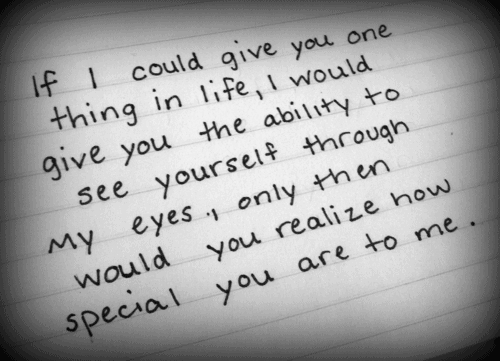 If I could give you one
thing in life, I would
give you the ability to
see yourself through
My eyes, only then
would you realize how
special you are to me.